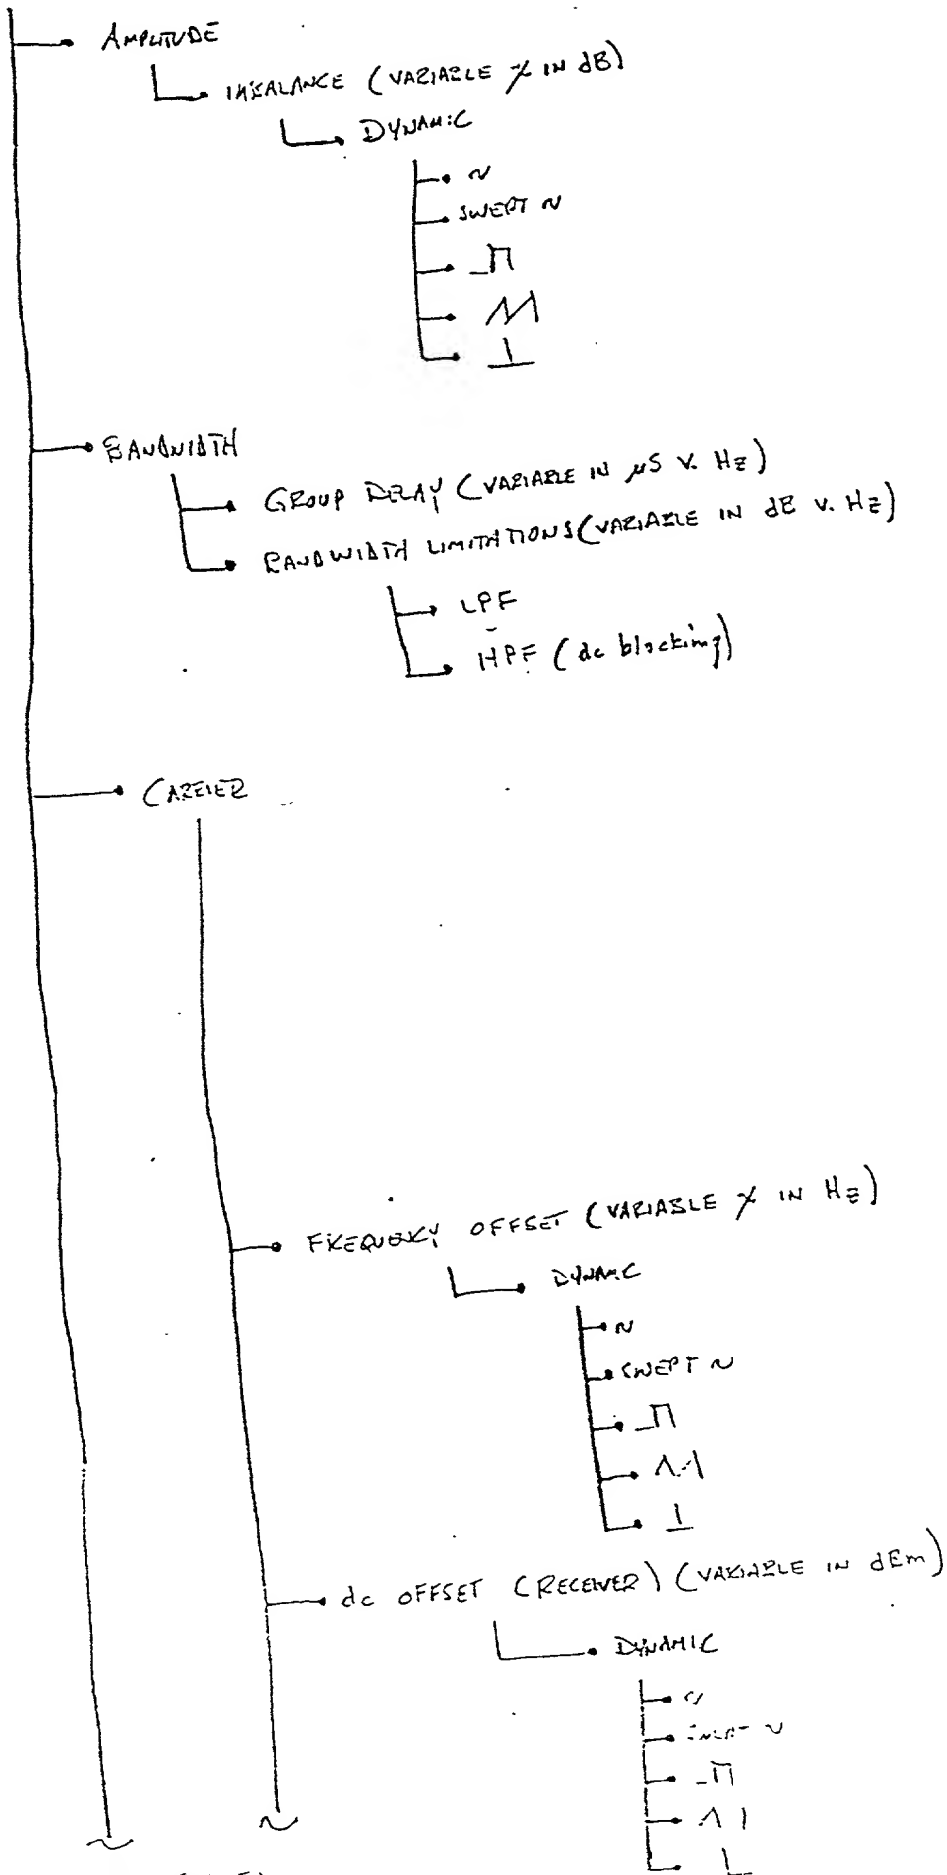 AMPLITUDE
IMBALANCE (VARIABLE % IN dB)
DYNAMIC
~
SWEPT ~
BANDWIDTH
GROUP DELAY (VARIABLE IN µS V. Hz)
BANDWIDTH LIMITATIONS (VARIABLE IN dB V. Hz)
LPF
HPF (dc blocking)
CARRIER
FREQUENCY OFFSET (VARIABLE % IN Hz)
DYNAMIC
~
SWEPT ~
dc OFFSET (RECEIVER) (VARIABLE IN dBm)
DYNAMIC
~